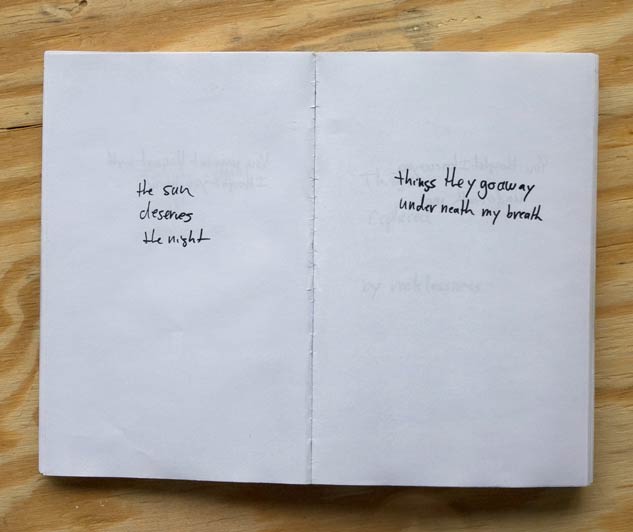 the sun
deserves
the night
things they go away
under neath my breath
by recklessness